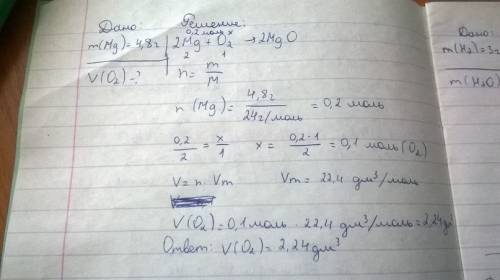 Дано: Решение:
0,2 моль x
m(Mg)=4,8г 2Mg + O₂ → 2MgO
2 1
V(O₂)-? n = m/M
n (Mg) = 4,8г / 24г/моль = 0,2 моль
0,2/2 = x/1 x = 0,2·1/2 = 0,1 моль (O₂)
V = n · Vm Vm = 22,4 дм³/моль
V(O₂) = 0,1 моль · 22,4 дм³/моль = 2,24 дм³
Ответ: V(O₂) = 2,24 дм³
Дано:
m(H₂)=3г
m(H₂O)